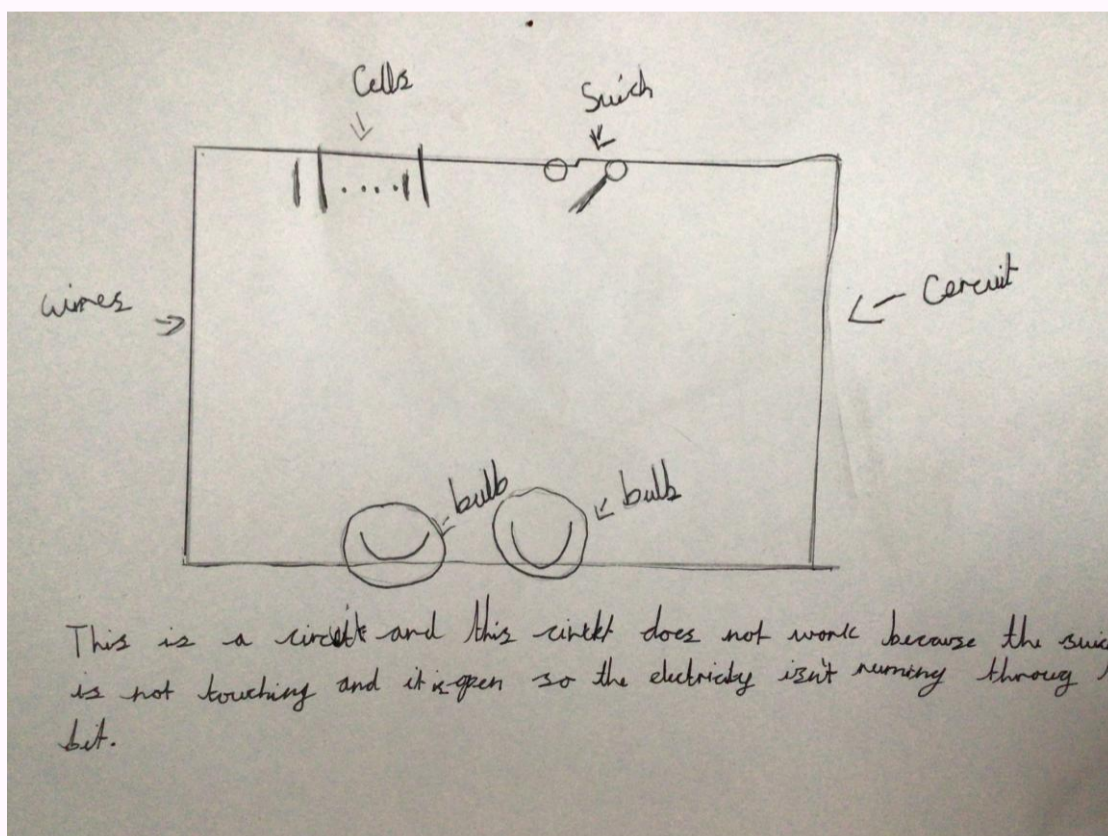 Cells
Suich
wires
Cercuit
bulb
bulb
This is a and this does not work because the
is not touching and it is open so the electricity isn't running throug
bit.